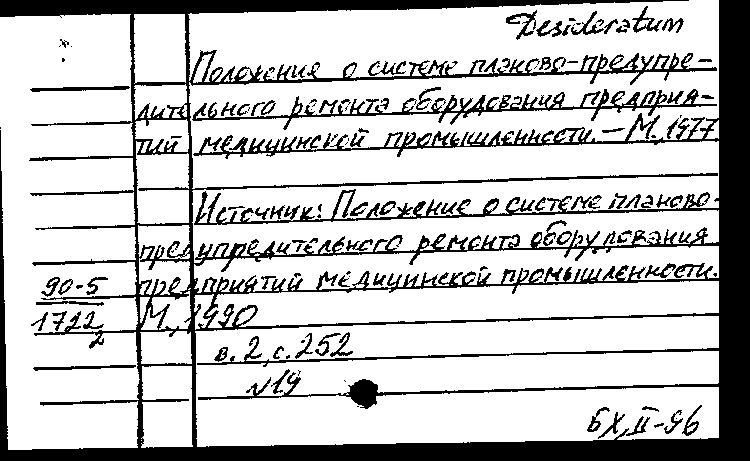 Desideratum
Положение о системе планово-предупре-
дительного ремонта оборудования предприя-
тий медицинской промышленности. – М., 1977
Источник: Положение о системе планово-
предупредительного ремонта оборудования
90-5 предприятий медицинской промышленности.
1722 М., 1990
2
в. 2, с. 252
N19
БХ, II-96